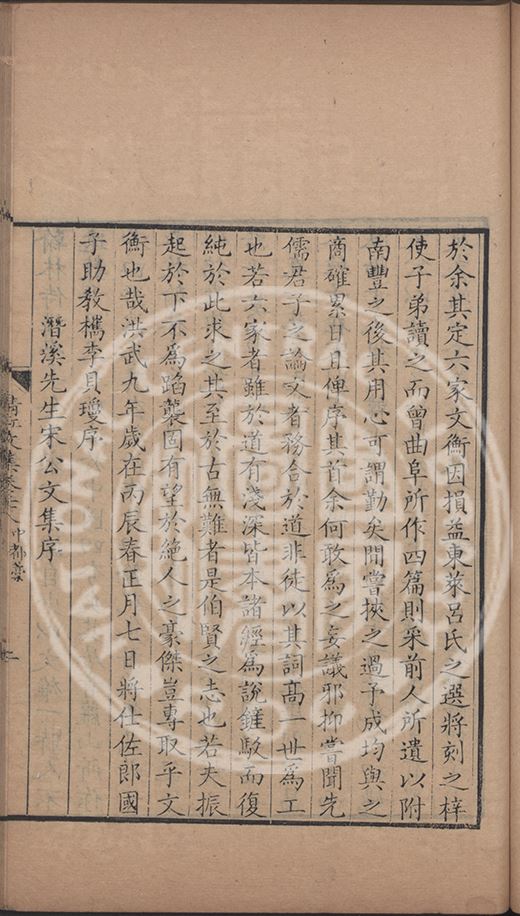 於余其定六家文衡因損益東萊呂氏之選將刻之梓
使子弟讀之而曾曲阜所作四篇則采前人所遺以附
南豐之後其用心可謂勤矣閒嘗挾之過予成均與之
商確累日且俾序其首余何敢爲之妄議邪抑嘗聞先
儒君子之論文者務合於道非徒以其詞髙一世爲工
也若六家者雖於道有淺深皆本諸經爲說鏟駁而復
純於此求之其至於古無難者是伯賢之志也若夫振
起於下不爲蹈襲固有望於絶人之豪傑豈專取乎文
衡也哉洪武九年歲在丙辰春正月七日將仕佐郎國
子助教檇李貝瓊序
潛溪先生宋公文集序
清江文集卷二十八 中都稾